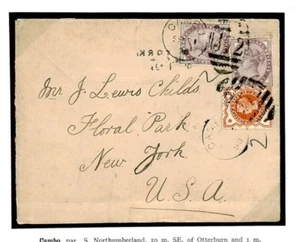 Mr J. Lewis Childs
Floral Park
New York
U.S.A.
Cambo, par. S. Northumberland, 10 m. SE. of Otterburn and 1 m.